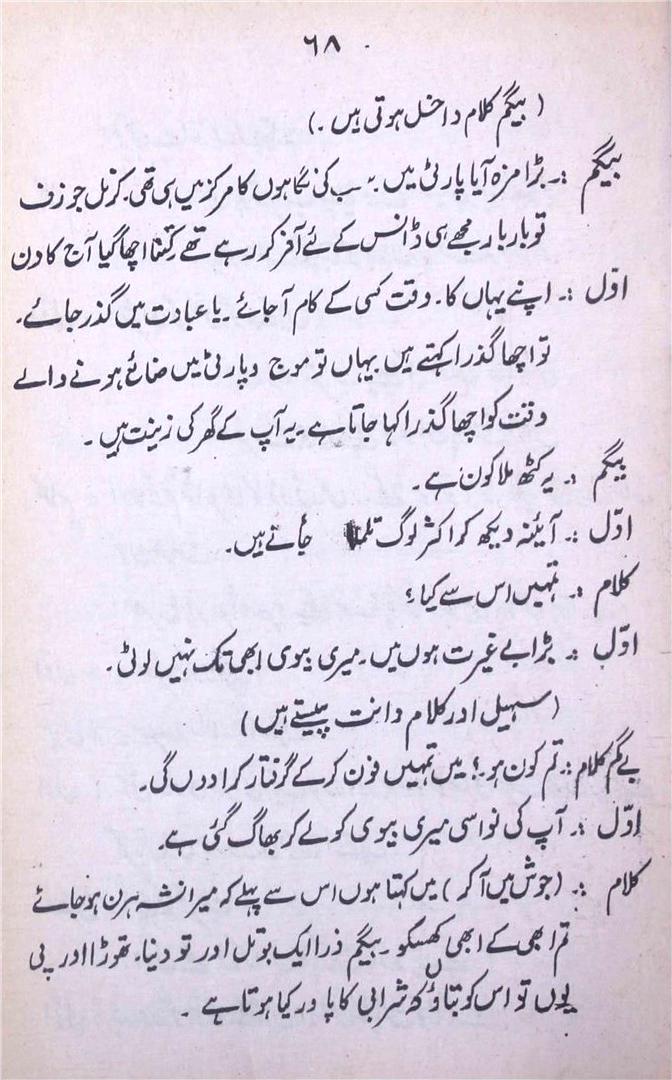 ۶۸
(بیگم کلام داخل ہوتی ہیں۔)
بیگم :۔ بڑا مزہ آیا پارٹی میں۔ سب کی نگاہوں کا مرکز میں ہی تھی۔ کرنل جوزف
تو بار بار مجھے ہی ڈانس کے لئے آفر کر رہے تھے کتنا اچھا گیا آج کا دن
اوّل :۔ اپنے یہاں کا۔ وقت کسی کے کام آجائے۔ یا عبادت میں گذر جائے۔
تو اچھا گذرا کہتے ہیں یہاں تو موج و پارٹی میں ضائع ہونے والے
وقت کو اچھا گذرا کہا جاتا ہے۔ یہ آپ کے گھر کی زینت ہیں۔
بیگم :۔ یہ کٹھ ملا کون ہے۔
اوّل :۔ آئینہ دیکھ کر اکثر لوگ تلملا جاتے ہیں۔
کلام :۔ تمہیں اس سے کیا؟
اوّل :۔ بڑا بے غیرت ہوں میں۔ میری بیوی ابھی تک نہیں لوٹی۔
(سہیل اور کلام دانت پیستے ہیں)
بے گم کلام :۔ تم کون ہو۔؟ میں تمہیں فون کر کے گرفتار کرا دوں گی۔
اوّل :۔ آپ کی نواسی میری بیوی کو لے کر بھاگ گئی ہے۔
کلام :۔ (جوش میں آکر) میں کہتا ہوں اس سے پہلے کہ میرا نشہ ہرن ہو جائے
تم ابھی کے ابھی کھسکو۔ بیگم ذرا ایک بوتل اور تو دینا۔ تھوڑا اور پی
لوں تو اس کو بتاؤں کہ شرابی کا پاور کیا ہوتا ہے۔